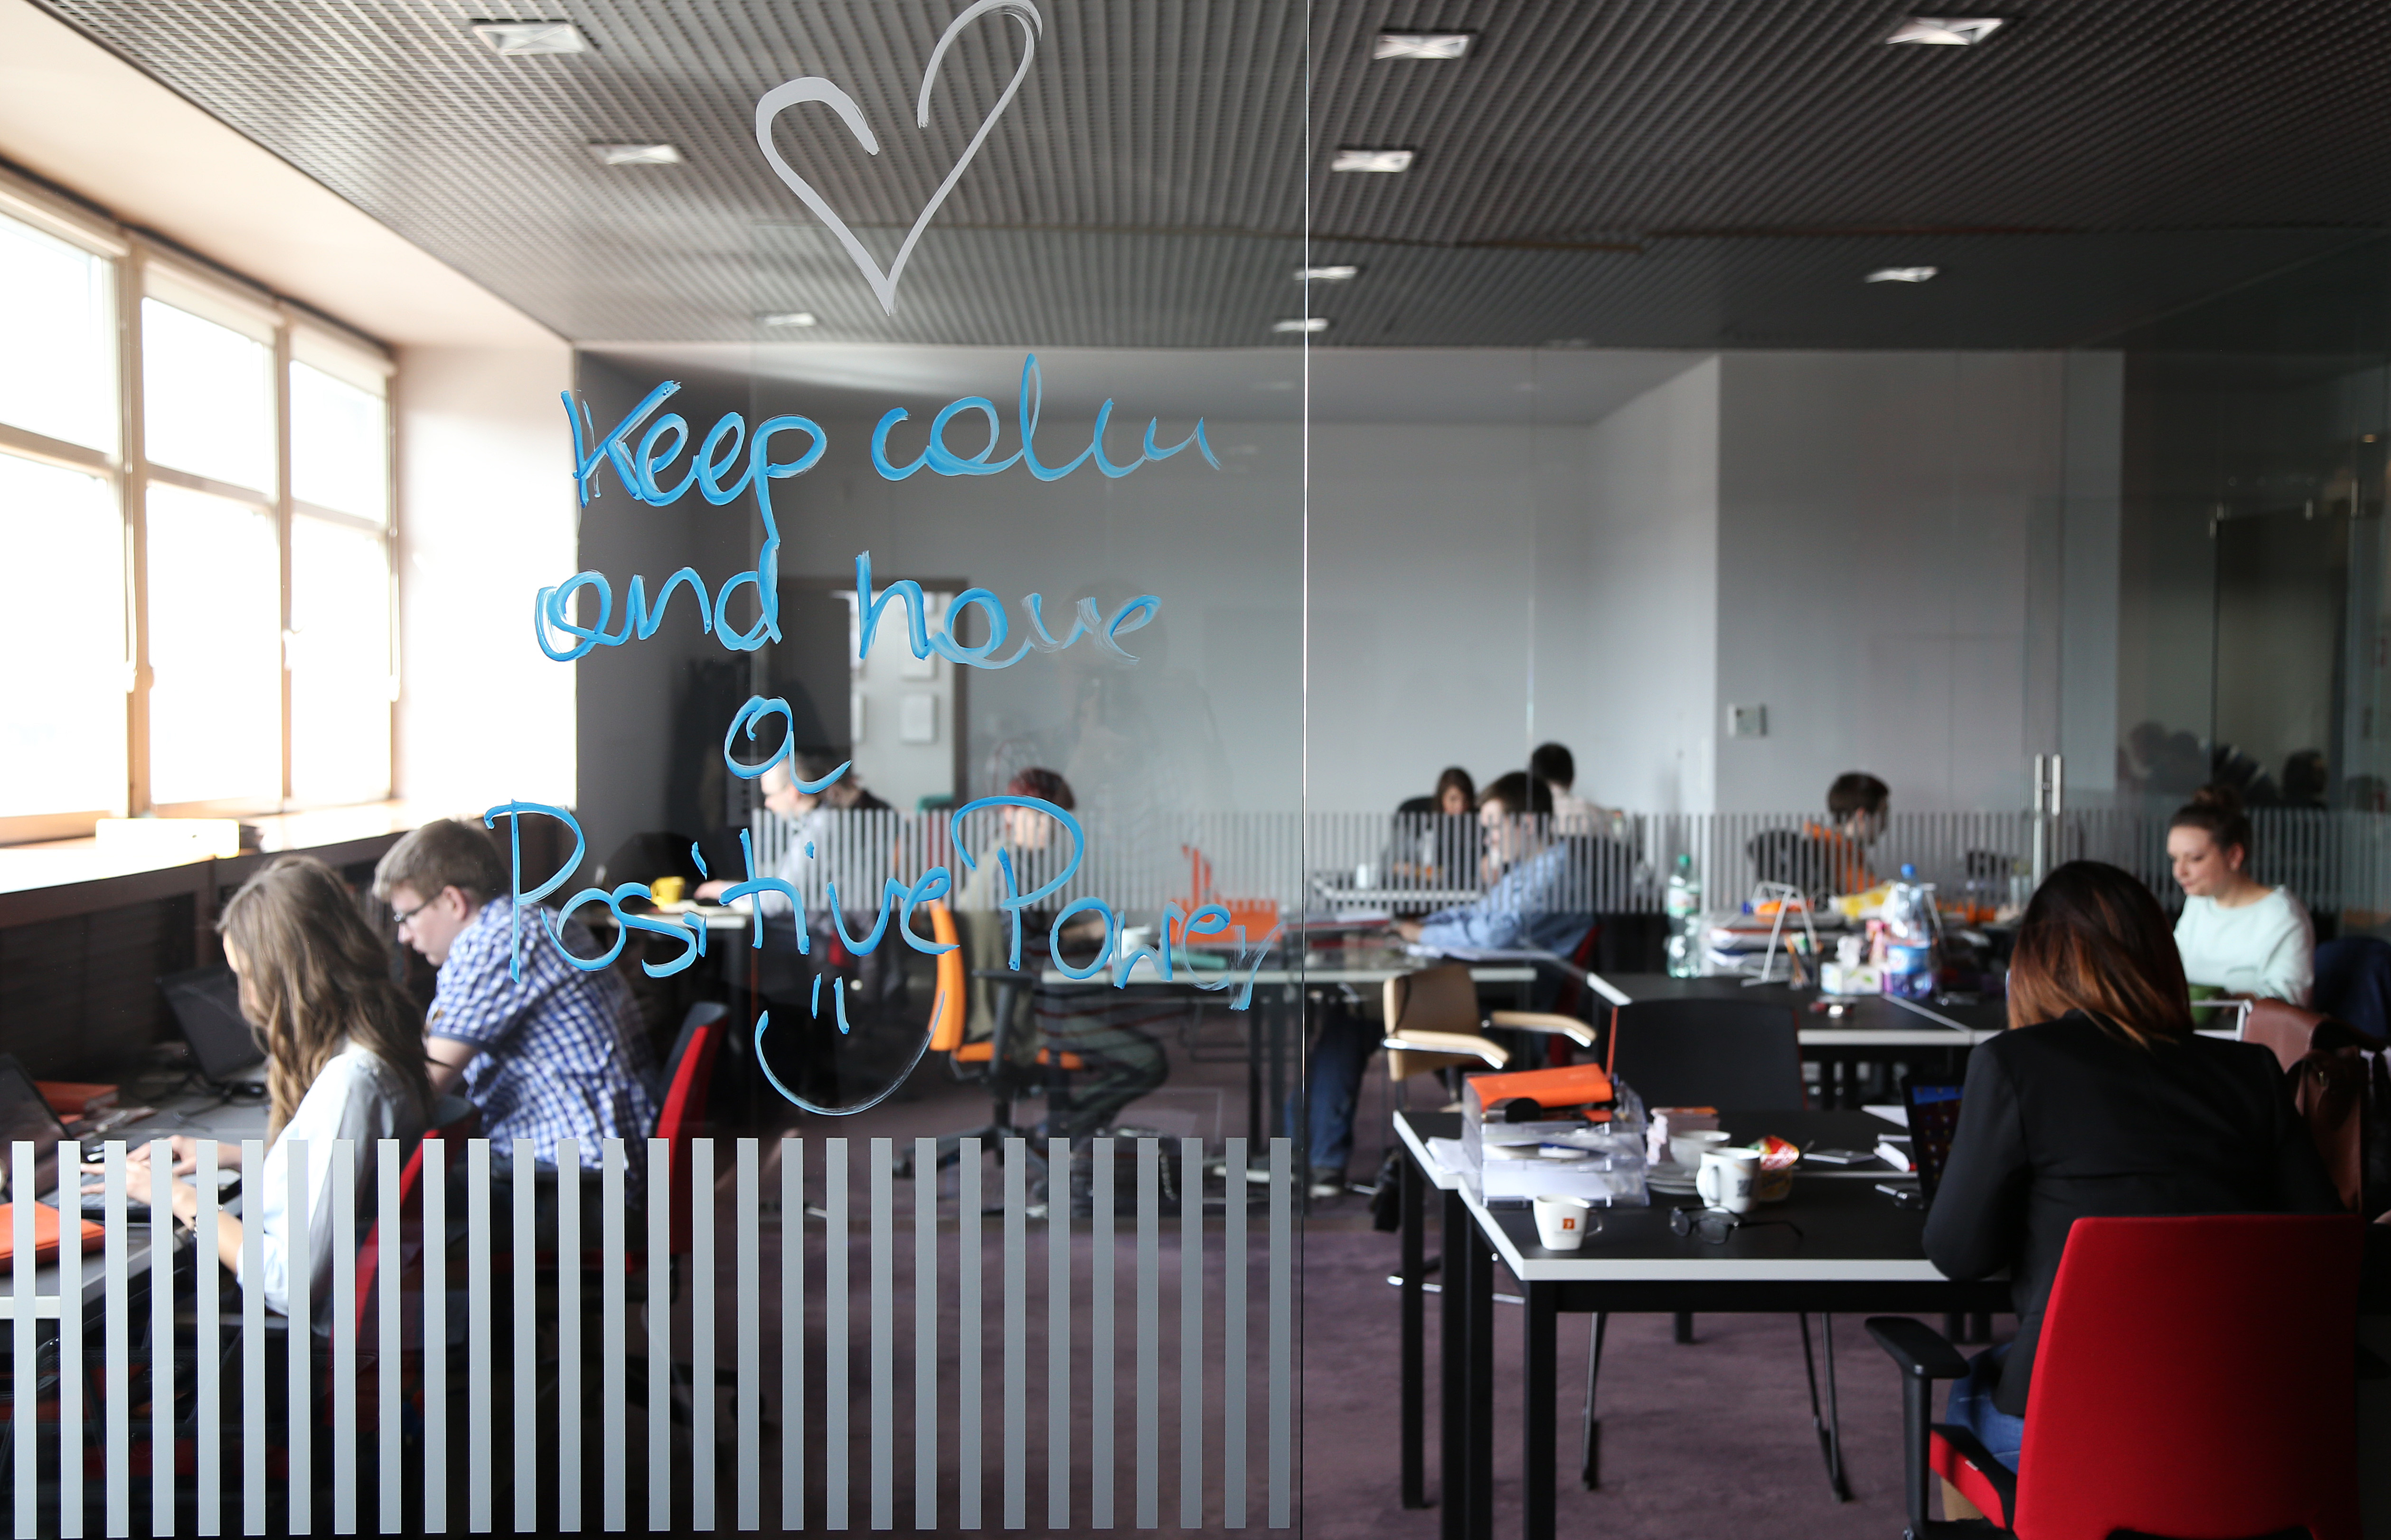 Keep calm
and have
a
Positive Power